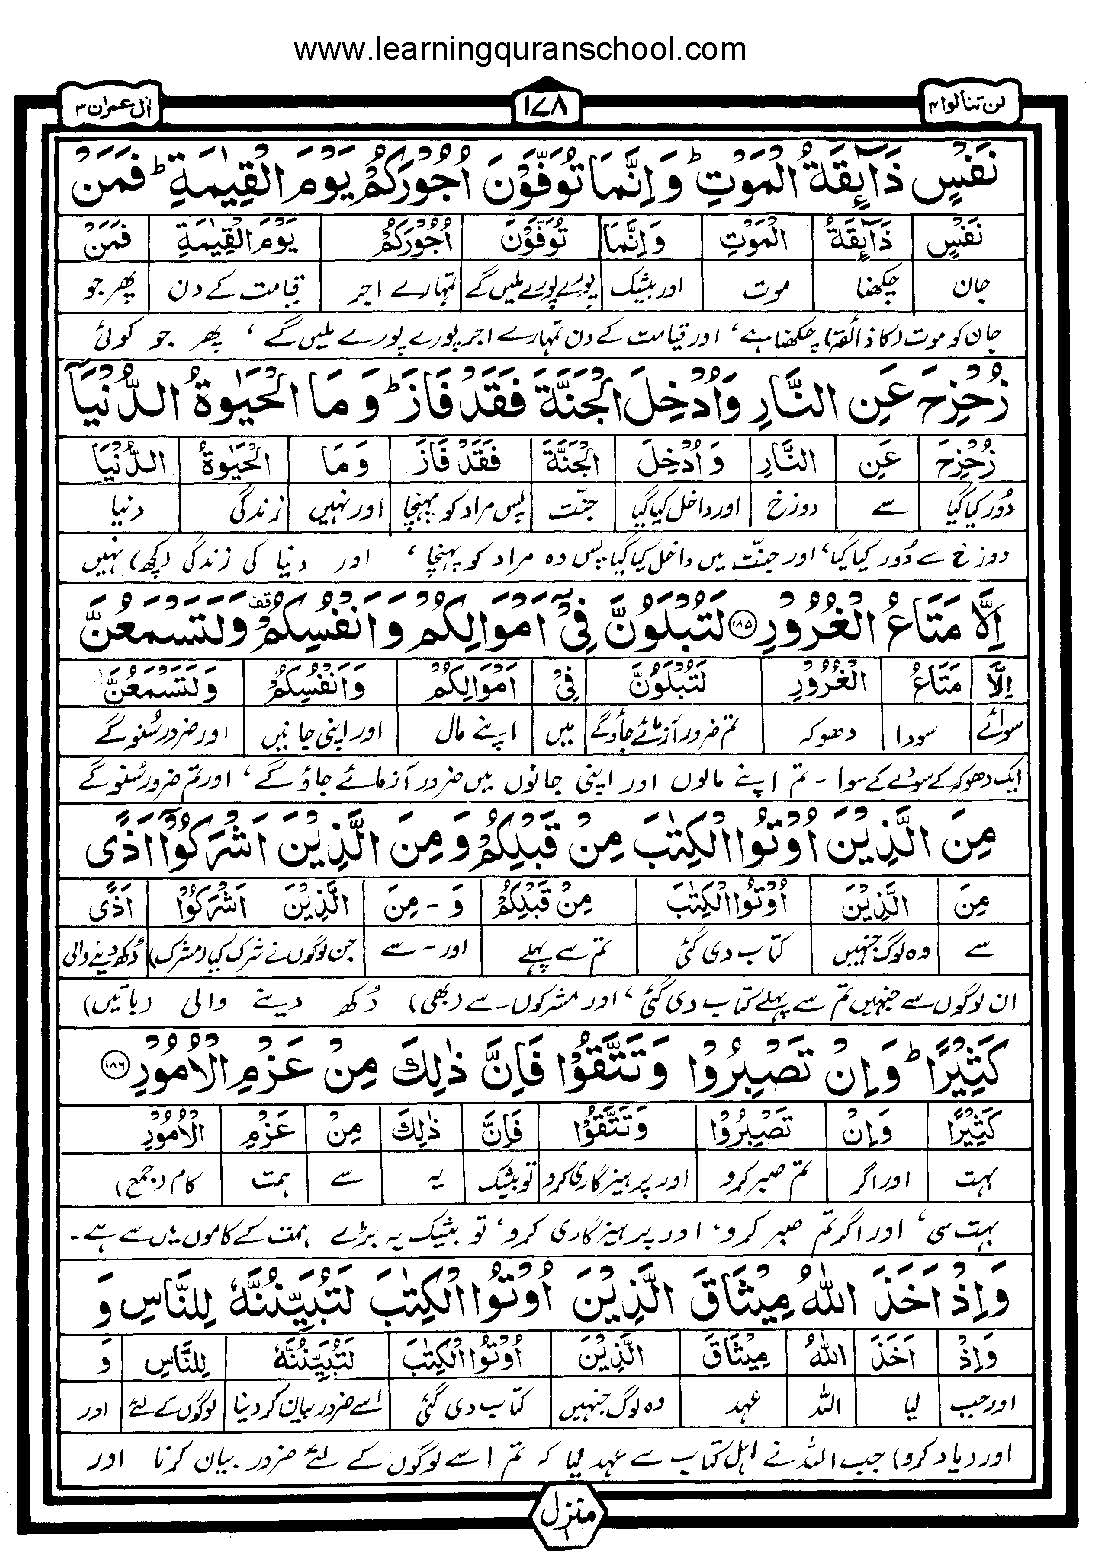 www.learningquranschool.com
لن تنالوا ۴
۱۷۸
اٰل عمران ۳
نَفْسٍ ذَآئِقَةُ الْمَوْتِ ؕ وَ اِنَّمَا تُوَفَّوْنَ اُجُوْرَكُمْ يَوْمَ الْقِيٰمَةِ ؕ فَمَنْ
نَفْسٍ ذَآئِقَةُ الْمَوْتِ وَ اِنَّمَا تُوَفَّوْنَ اُجُوْرَكُمْ يَوْمَ الْقِيٰمَةِ فَمَنْ
جان چکھنا موت اور بیشک پورے پورے ملیں گے تمہارے اجر قیامت کے دن پھر جو
جان کو موت (کا ذائقہ) چکھنا ہے ‘ اور قیامت کے دن تمہارے اجر پورے پورے ملیں گے ‘ پھر جو کوئی
زُحْزِحَ عَنِ النَّارِ وَ اُدْخِلَ الْجَنَّةَ فَقَدْ فَازَ ؕ وَ مَا الْحَيٰوةُ الدُّنْيَاۤ
زُحْزِحَ عَنِ النَّارِ وَ اُدْخِلَ الْجَنَّةَ فَقَدْ فَازَ وَ مَا الْحَيٰوةُ الدُّنْيَاۤ
دُور کیا گیا سے دوزخ اور داخل کیا گیا جنّت پس مراد کو پہنچا اور نہیں زندگی دنیا
دوزخ سے دُور کیا گیا ‘ اور جنّت میں داخل کیا گیا پس وہ مراد کو پہنچا ‘ اور دنیا کی زندگی (کچھ) نہیں
اِلَّا مَتَاعُ الْغُرُوْرِ ۝۱۸۵ لَتُبْلَوُنَّ فِيْۤ اَمْوَالِكُمْ وَ اَنْفُسِكُمْ قف وَ لَتَسْمَعُنَّ
اِلَّا مَتَاعُ الْغُرُوْرِ لَتُبْلَوُنَّ فِيْۤ اَمْوَالِكُمْ وَ اَنْفُسِكُمْ وَ لَتَسْمَعُنَّ
سوائے سودا دھوکہ تم ضرور آزمائے جاؤ گے میں اپنے مال اور اپنی جانیں اور ضرور سُنو گے
ایک دھوکہ کے سودے کے سوا ۔ تم اپنے مالوں اور اپنی جانوں میں ضرور آزمائے جاؤ گے ‘ اور تم ضرور سُنو گے
مِنَ الَّذِيْنَ اُوْتُوا الْكِتٰبَ مِنْ قَبْلِكُمْ وَ مِنَ الَّذِيْنَ اَشْرَكُوْۤا اَذًى
مِنَ الَّذِيْنَ اُوْتُوا الْكِتٰبَ مِنْ قَبْلِكُمْ وَ - مِنَ الَّذِيْنَ اَشْرَكُوْۤا اَذًى
سے وہ لوگ جنہیں کتاب دی گئی تم سے پہلے اور - سے جن لوگوں نے شرک کیا (مشرک) دُکھ دینے والی
ان لوگوں سے جنہیں تم سے پہلے کتاب دی گئی ‘ اور مشرکوں سے (بھی) دُکھ دینے والی (باتیں)
كَثِيْرًا ؕ وَ اِنْ تَصْبِرُوْا وَ تَتَّقُوْا فَاِنَّ ذٰلِكَ مِنْ عَزْمِ الْاُمُوْرِ ۝۱۸۶
كَثِيْرًا وَ اِنْ تَصْبِرُوْا وَ تَتَّقُوْا فَاِنَّ ذٰلِكَ مِنْ عَزْمِ الْاُمُوْرِ
بہت اور اگر تم صبر کرو اور پرہیزگاری کرو تو بیشک یہ سے ہمت کام (جمع)
بہت سی ‘ اور اگر تم صبر کرو ‘ اور پرہیزگاری کرو ‘ تو بیشک یہ بڑے ہمت کے کاموں میں سے ہے ۔
وَ اِذْ اَخَذَ اللّٰهُ مِيْثَاقَ الَّذِيْنَ اُوْتُوا الْكِتٰبَ لَتُبَيِّنُنَّهٗ لِلنَّاسِ وَ
وَ اِذْ اَخَذَ اللّٰهُ مِيْثَاقَ الَّذِيْنَ اُوْتُوا الْكِتٰبَ لَتُبَيِّنُنَّهٗ لِلنَّاسِ وَ
اور جب لیا اللہ عہد وہ لوگ جنہیں کتاب دی گئی اسے ضرور بیان کردینا لوگوں کے لئے اور
اور (یاد کرو) جب اللہ نے اہل کتاب سے عہد لیا کہ تم اسے لوگوں کے لئے ضرور بیان کرنا اور
منزل ۱